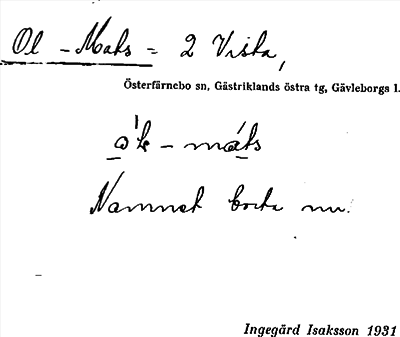 Ol - Mats = 2 Vista,
Österfärnebo sn, Gästriklands östra tg, Gävleborgs l.
- máts
Namnet borta nu.
Ingegärd Isaksson 1931